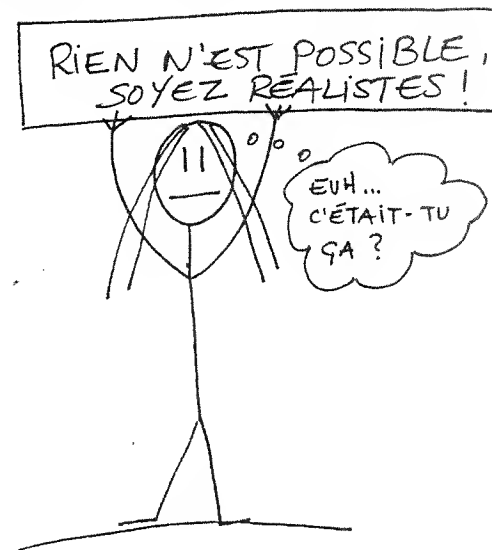 RiEN N'EST POSSiBLE,
SOYEZ RÉALiSTES !
EUH...
C'ÉTAiT-TU
ÇA ?